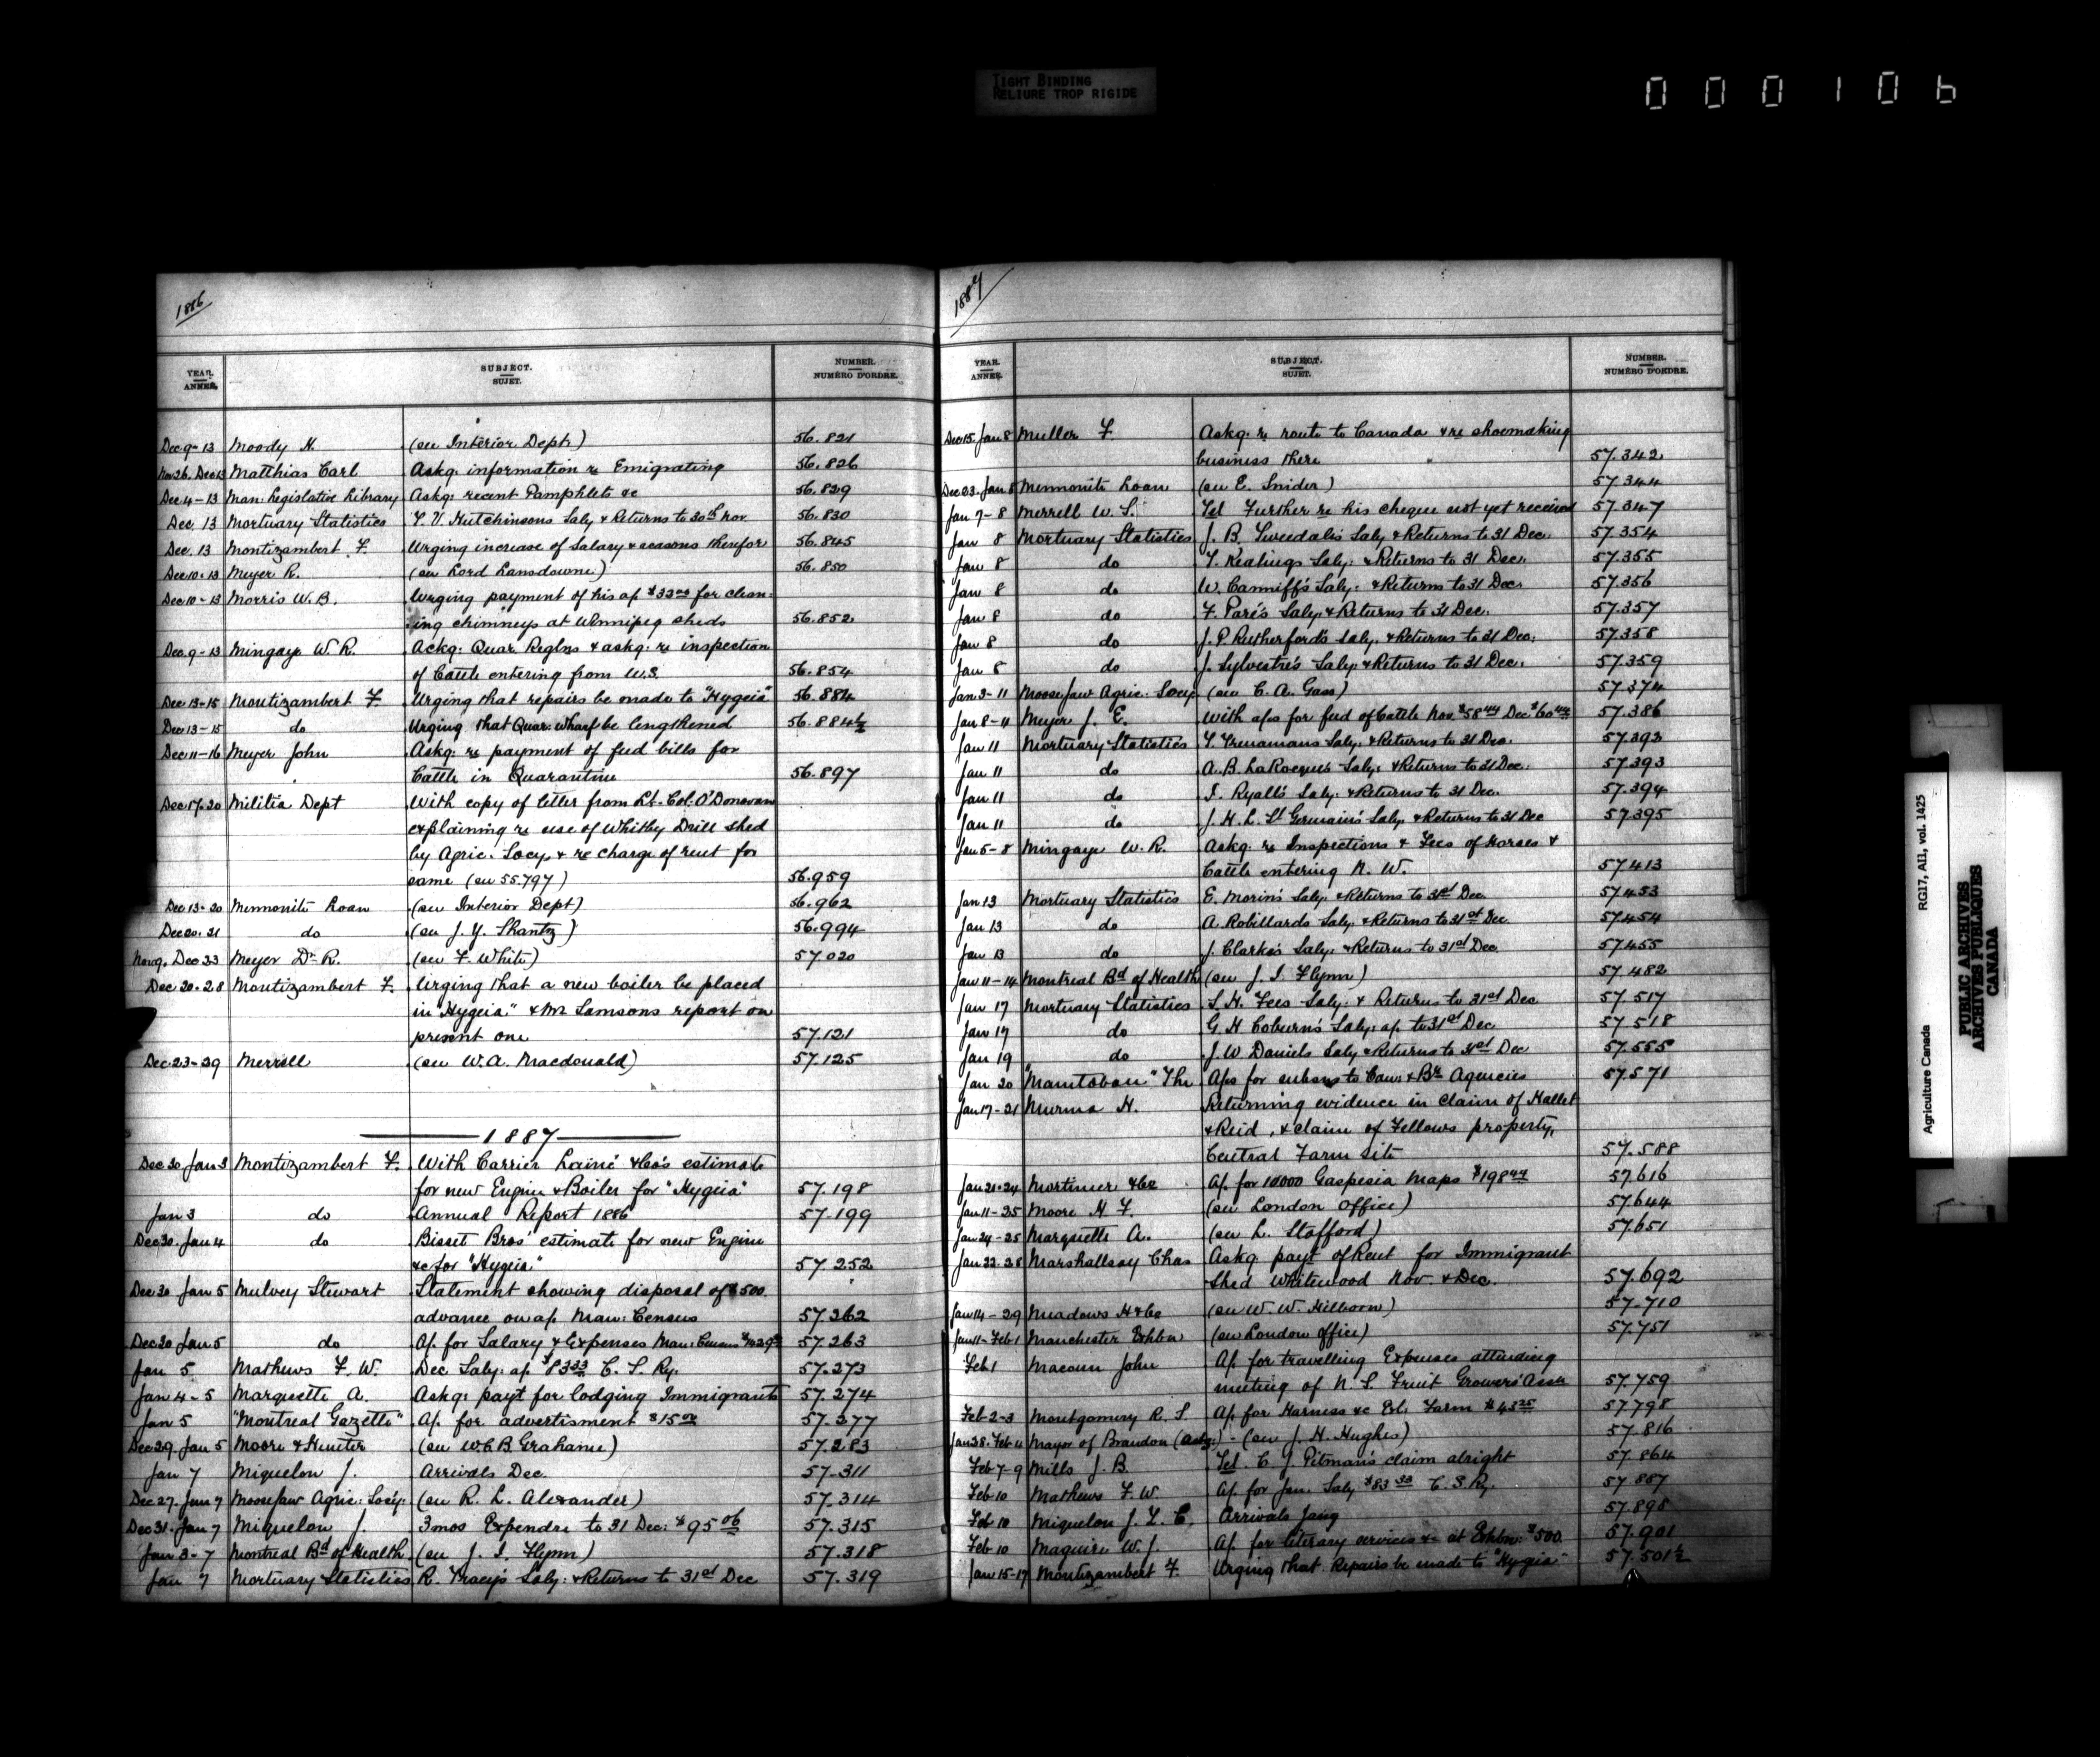 TIGHT BINDING
RELIURE TROP RIGIDE
000106
1886
YEAR. ANNÉE. SUBJECT. SUJET. NUMBER. NUMÉRO D'ORDRE.
Dec 9-13 Moody H. (see Interior Dept) 56.821
Nov 26. Dec 13 Matthias Carl Askg. information re Emigrating 56.826
Dec 4-13 Man: Legislative Library Askg: recent Pamphlets &c 56.829
Dec. 13 Mortuary Statistics T. V. Hutchinsons Saly & Returns to 30th Nov. 56.830
Dec. 13 Montizambert F. Urging increase of Salary & reasons therefor 56.845
Dec 10-13 Meyer R. (see Lord Lansdowne) 56.850
Dec 10-13 Morris W. B. Urging payment of his a/c for clean-
ing chimneys at Winnipeg sheds 56.852
Dec. 9-13 Mingaye W. R. Ackg: Quar Reglns & askg: re inspection
of Cattle entering from U.S. 56.854
Dec 13-15 Montizambert F. Urging that repairs be made to "Hygeia" 56.884
Dec 13-15 do Urging that Quar. Wharf be lengthened 56.884½
Dec 11-16 Meyer John Askg: re payment of feed bills for
Cattle in Quarantine 56.897
Dec 17-20 Militia Dept With copy of letter from Lt. Col. O'Donovan
explaining re use of Whitby Drill shed
by Agric. Socy. & re charge of rent for
same (see 55.797) 56.959
Dec 13-20 Mennonite Loan (see Interior Dept) 56.962
Dec 20-21 do (see J. Y. Shantz) 56.994
Nov 9. Dec 23 Meyer Dr R. (see F. White) 57.020
Dec 20-28 Montizambert F. Urging that a new boiler be placed
in "Hygeia" & Mr Samsons report on
present one 57.121
Dec 23-29 Merrill (see W. A. Macdonald) 57.125
1887
Dec 30 Jan 3 Montizambert F. With Carrier Lainé & Co's estimate
for new Engine & Boiler for "Hygeia" 57.198
Jan 3 do Annual Report 1886 57.199
Dec 30. Jan 4 do Bisset Bros' estimate for new Engine
&c for "Hygeia" 57.252
Dec 30 Jan 5 Mulvey Stewart Statement showing disposal of $500
advance on a/c Man: Census 57.262
Dec 30 Jan 5 do A/c for Salary & Expenses Man: Census 57.263
Jan 5 Mathews F. W. Dec Saly: a/c $83 33 C. S. Ry. 57.273
Jan 4-5 Marquette A. Askg: payt for lodging Immigrants 57.274
Jan 5 "Montreal Gazette" A/c for advertisment $15 57.277
Dec 29. Jan 5 Moore & Hunter (see W. C. B. Grahame) 57.283
Jan 7 Miquelon J. Arrivals Dec. 57.311
Dec 27. Jan 7 Moosejaw Agric: Socy: (see R. L. Alexander) 57.314
Dec 31. Jan 7 Miquelon J. 3 mos Expendre to 31 Dec: $95 06 57.315
Jan 3-7 Montreal Bd of Health (see J. I. Flynn) 57.318
Jan 7 Mortuary Statistics R. Tracey's Saly: & Returns to 31st Dec 57.319
1887
YEAR. ANNÉE. SUBJECT. SUJET. NUMBER. NUMÉRO D'ORDRE.
Dec 15. Jan 8 Muller F. Askg: re route to Canada & re shoemaking
business there 57.342
Dec 23. Jan 8 Mennonite Loan (see E. Snider) 57.344
Jan 7-8 Merrell W. S. Tel Further re his cheque not yet received 57.347
Jan 8 Mortuary Statistics J. B. Tweedale's Saly & Returns to 31 Dec. 57.354
Jan 8 do T. Keatings Saly: & Returns to 31 Dec. 57.355
Jan 8 do W. Canniff's Saly: & Returns to 31 Dec. 57.356
Jan 8 do F. Paré's Saly: & Returns to 31 Dec. 57.357
Jan 8 do J. P. Rutherford's Saly. & Returns to 31 Dec: 57.358
Jan 8 do J. Sylvestre's Saly: & Returns to 31 Dec. 57.359
Jan 3-11 Moosejaw Agric. Socy. (see C. A. Gass) 57.374
Jan 8-11 Meyer J. E. With a/cs for feed of Cattle Nov. $58 44 Dec $60 57.386
Jan 11 Mortuary Statistics Saly: & Returns to 31 Dec. 57.392
Jan 11 do A. B. LaRocque's Saly: & Returns to 31 Dec: 57.393
Jan 11 do I. Ryall's Saly: & Returns to 31 Dec. 57.394
Jan 11 do J. H. L. St Germain's Saly. & Returns to 31 Dec 57.395
Jan 5-8 Mingaye W. R. Askg: re Inspections & Fees of Horses &
Cattle entering N. W. 57.413
Jan 13 Mortuary Statistics E. Morin's Saly. & Returns to 31st Dec 57.453
Jan 13 do A. Robillards Saly. & Returns to 31st Dec. 57.454
Jan 13 do J. Clarke's Saly. & Returns to 31st Dec. 57.455
Jan 11-14 Montreal Bd of Health (see J. I. Flynn) 57.482
Jan 17 Mortuary Statistics S. H. Fees Saly: & Returns to 31st Dec 57.517
Jan 17 do G. H Coburn's Saly: a/c to 31st Dec. 57.518
Jan 19 do J. W Daniels Saly & Returns to 31st Dec 57.555
Jan 20 "Manitoban" The A/cs for subsns to Can: & Br. Agencies 57.571
Jan 17-21 H. Returning evidence in claim of Hallet
& Reid, & claim of Fellows property,
Central Farm site 57.588
Jan 21-24 Mortimer & Co A/c for 10000 Gaspesia Maps $198 57.616
Jan 11-25 Moore H F. (see London Office) 57.644
Jan 24-25 Marquette A. (see L. Stafford) 57.651
Jan 22-28 Marshallsay Chas Askg payt of Rent for Immigrant
Shed Whitewood Nov. & Dec. 57.692
Jan 14-29 Meadows H & Co (see W. W. Hilborn) 57.710
Jan 11-Feb 1 Manchester Exhbn (see London Office) 57.751
Feb 1 Macoun John A/c for travelling Expenses attending
meeting of N. S. Fruit Growers' Assn 57.759
Feb 2-3 Montgomery R. S. A/c for Harness &c Exl. Farm $43 25 57.798
Jan 28. Feb 4 Mayor of Brandon (Actg:) - (see J. H. Hughes) 57.816
Feb 7-9 Mills J. B. Tel. C. J. Pitman's claim alright 57.864
Feb 10 Mathews F. W A/c for Jan. Saly $83 33 C. S. Ry. 57.887
Feb 10 Miquelon J. L. C. Arrivals Jany 57.898
Feb 10 Maguire W. J. A/c for literary services &c at Exhbn: $500. 57.901
Jan 15-17 Montizambert F. Urging that Repairs be made to "Hygeia" 57.501½
Agriculture Canada RG17, AII, vol. 1425
PUBLIC ARCHIVES
ARCHIVES PUBLIQUES
CANADA